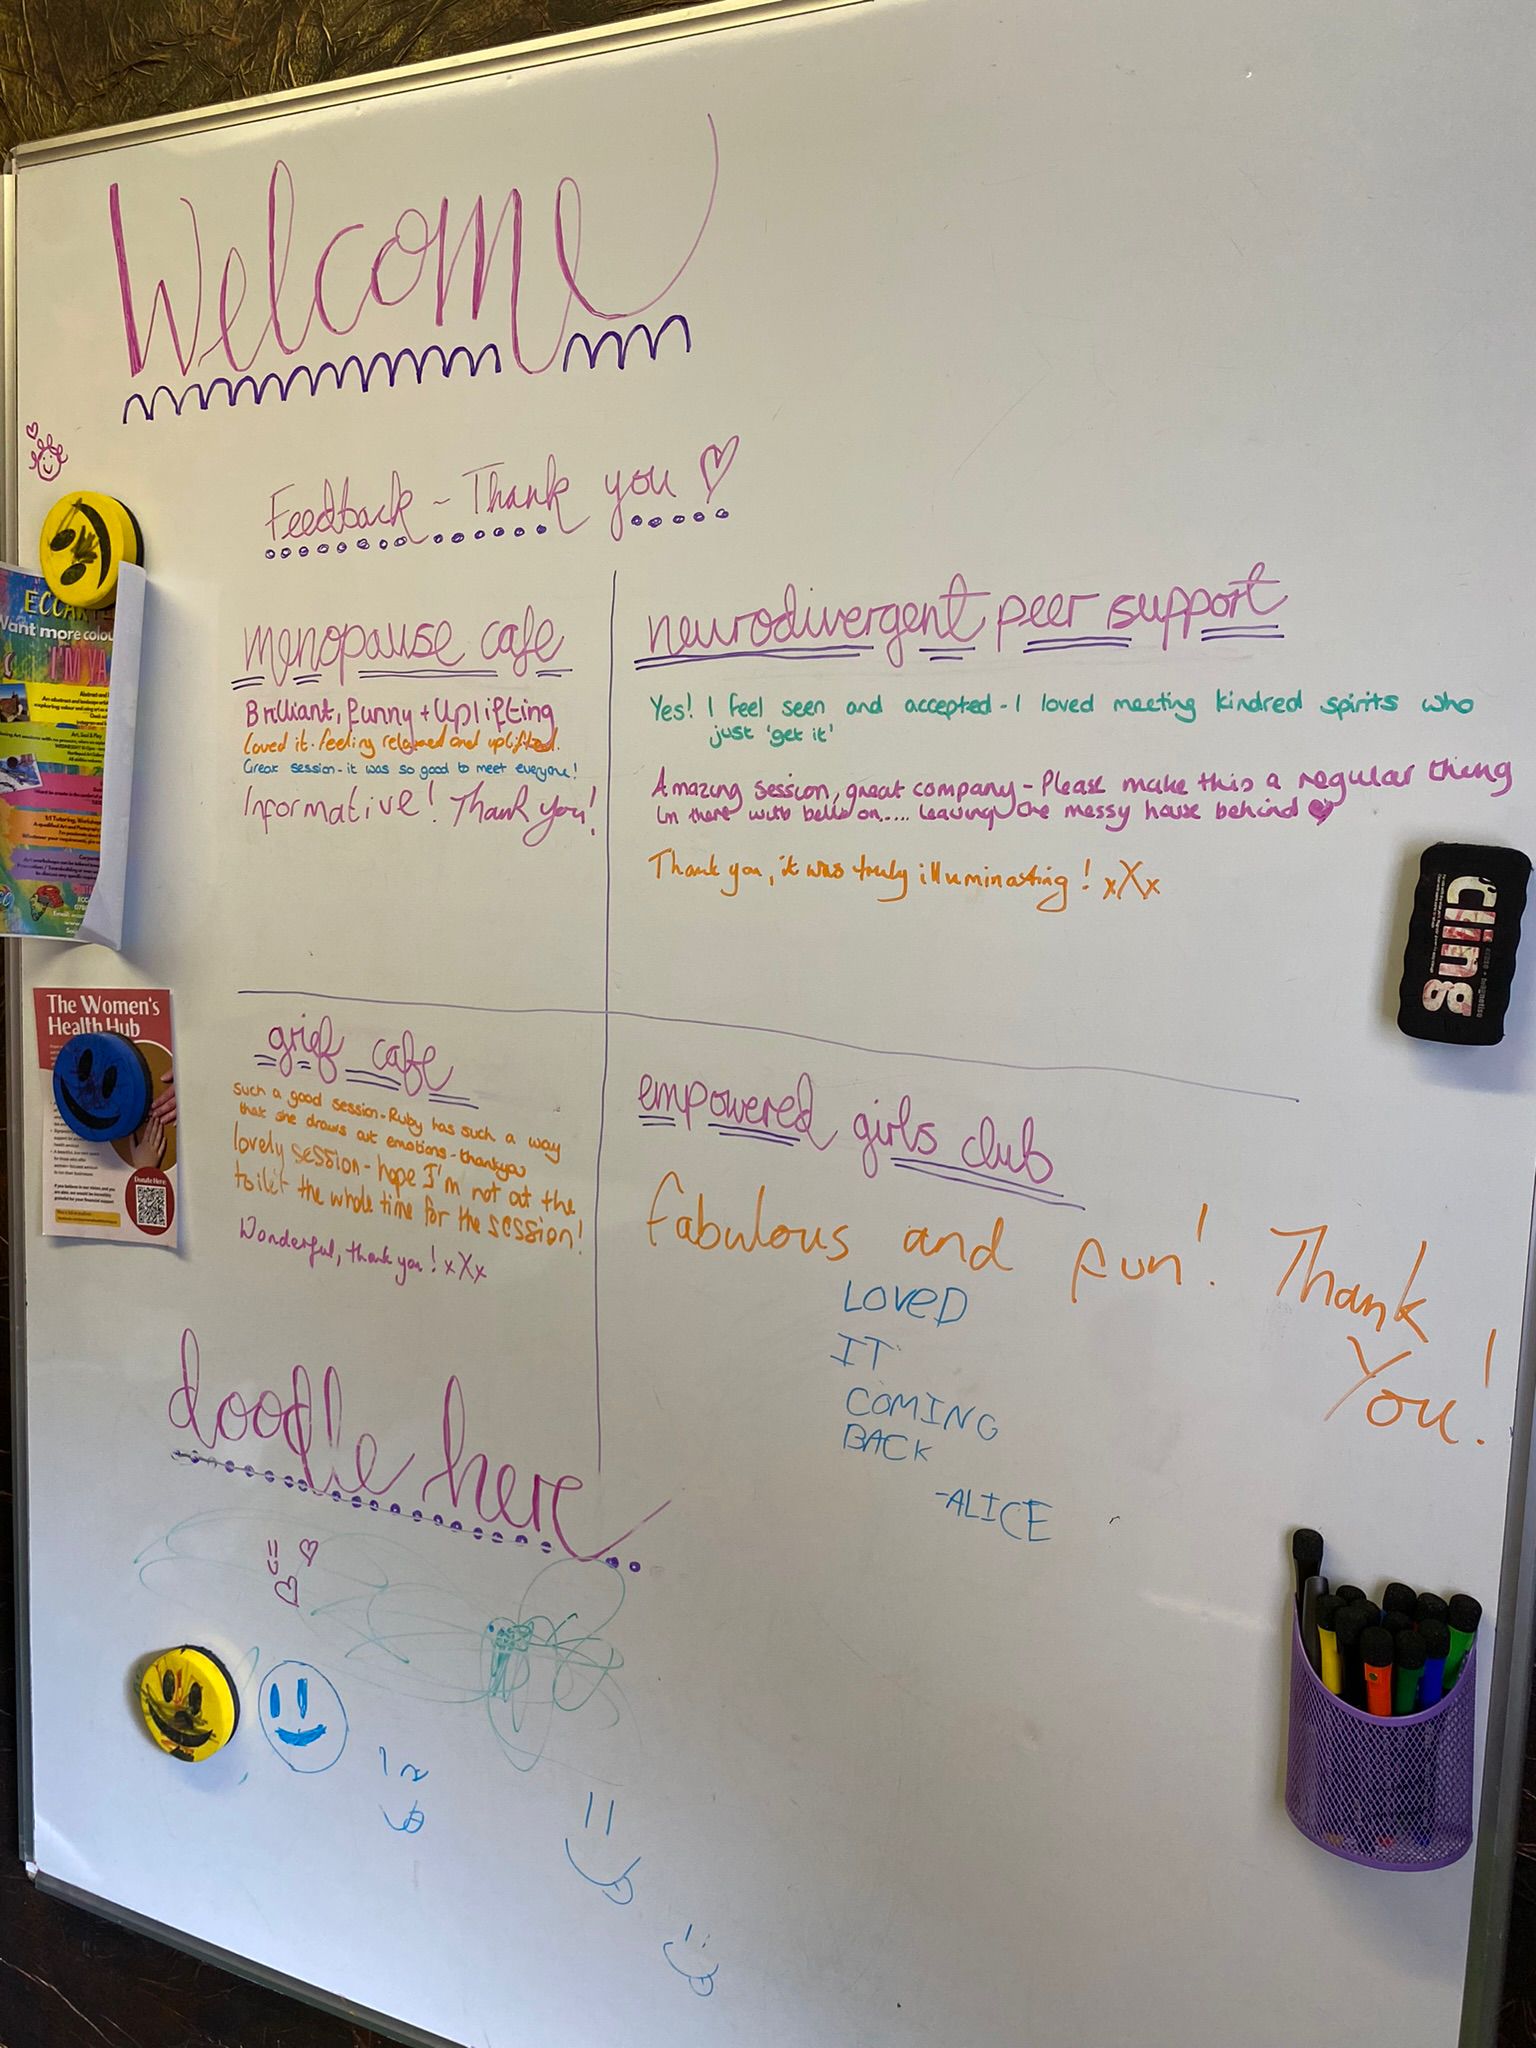 Welcome
Feedback ~ Thank you
menopause cafe
Brilliant, funny + uplifting
Loved it. feeling relaxed and uplifted.
Great session - it was so good to meet everyone!
Informative! Thank you!
neurodivergent peer support
Yes! I feel seen and accepted - I loved meeting kindred spirits who
just 'get it'
Amazing session, great company - Please make this a regular thing
Im there with bells on.... leaving the messy house behind
Thank you, it was truly illuminating! xXx
grief cafe
Such a good session - Ruby has such a way
that she draws out emotions - thankyou
lovely session - hope I'm not at the
toilet the whole time for the session!
Wonderful, thank you! xXx
empowered girls club
Fabulous and fun! Thank
You!
LOVED
IT
COMING
BACK
-ALICE
doodle here
Want more colou
I'M YA
1:1 Tutoring, Workshop
The Women's
Health Hub
Donate Here
cling